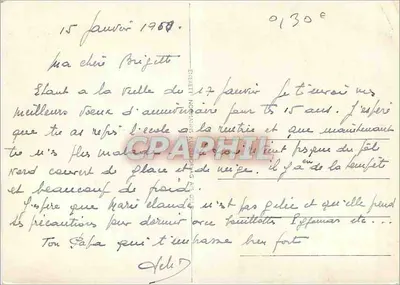 15 Janvier 1960.
0,30€
Ma chère Brigitte
Etant a la veille du 17 Janvier je t'envoie mes
meilleurs voeux d'anniversaire pour tes 15 ans. J'espère
que tu as repris l'école a la rentrée et que maintenant
tu n'es plus malade
CPAPHIL
nord couvert de glace et de neige. il y a de la tempête
et beaucoup de froid.
J'espère que Marie Claude n'est pas gelée et qu'elle prend
ses précautions pour dormir avec bouillottes Eggman etc...
Ton Papa qui t'embrasse bien fort